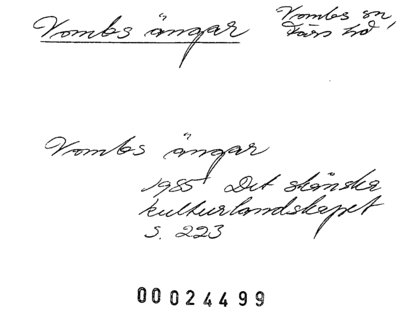 Vombs ängar
Vombs sn,
Färs hd
Vombs ängar
1985 Det skånska
kulturlandskapet
s. 223
00024499